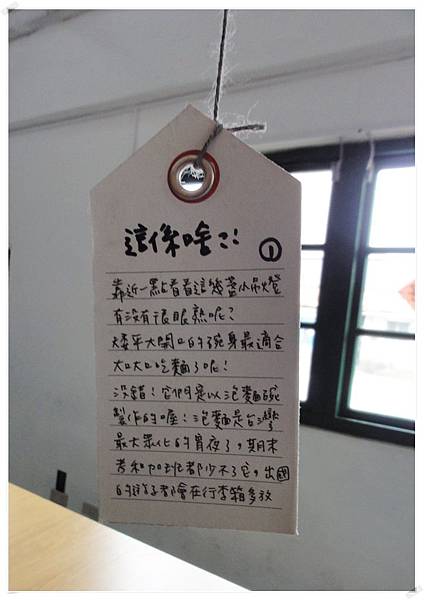 這係啥ㄈ: ①
靠近一點看看這幾盞小吊燈
有沒有很眼熟呢？
矮平大開口的碗身最適合
大口大口吃麵了呢！
沒錯！它們是以泡麵碗
製作的喔！泡麵是台灣
最大眾化的宵夜了，期末
考和加班都少不了它，出國
的遊子都會在行李箱多放